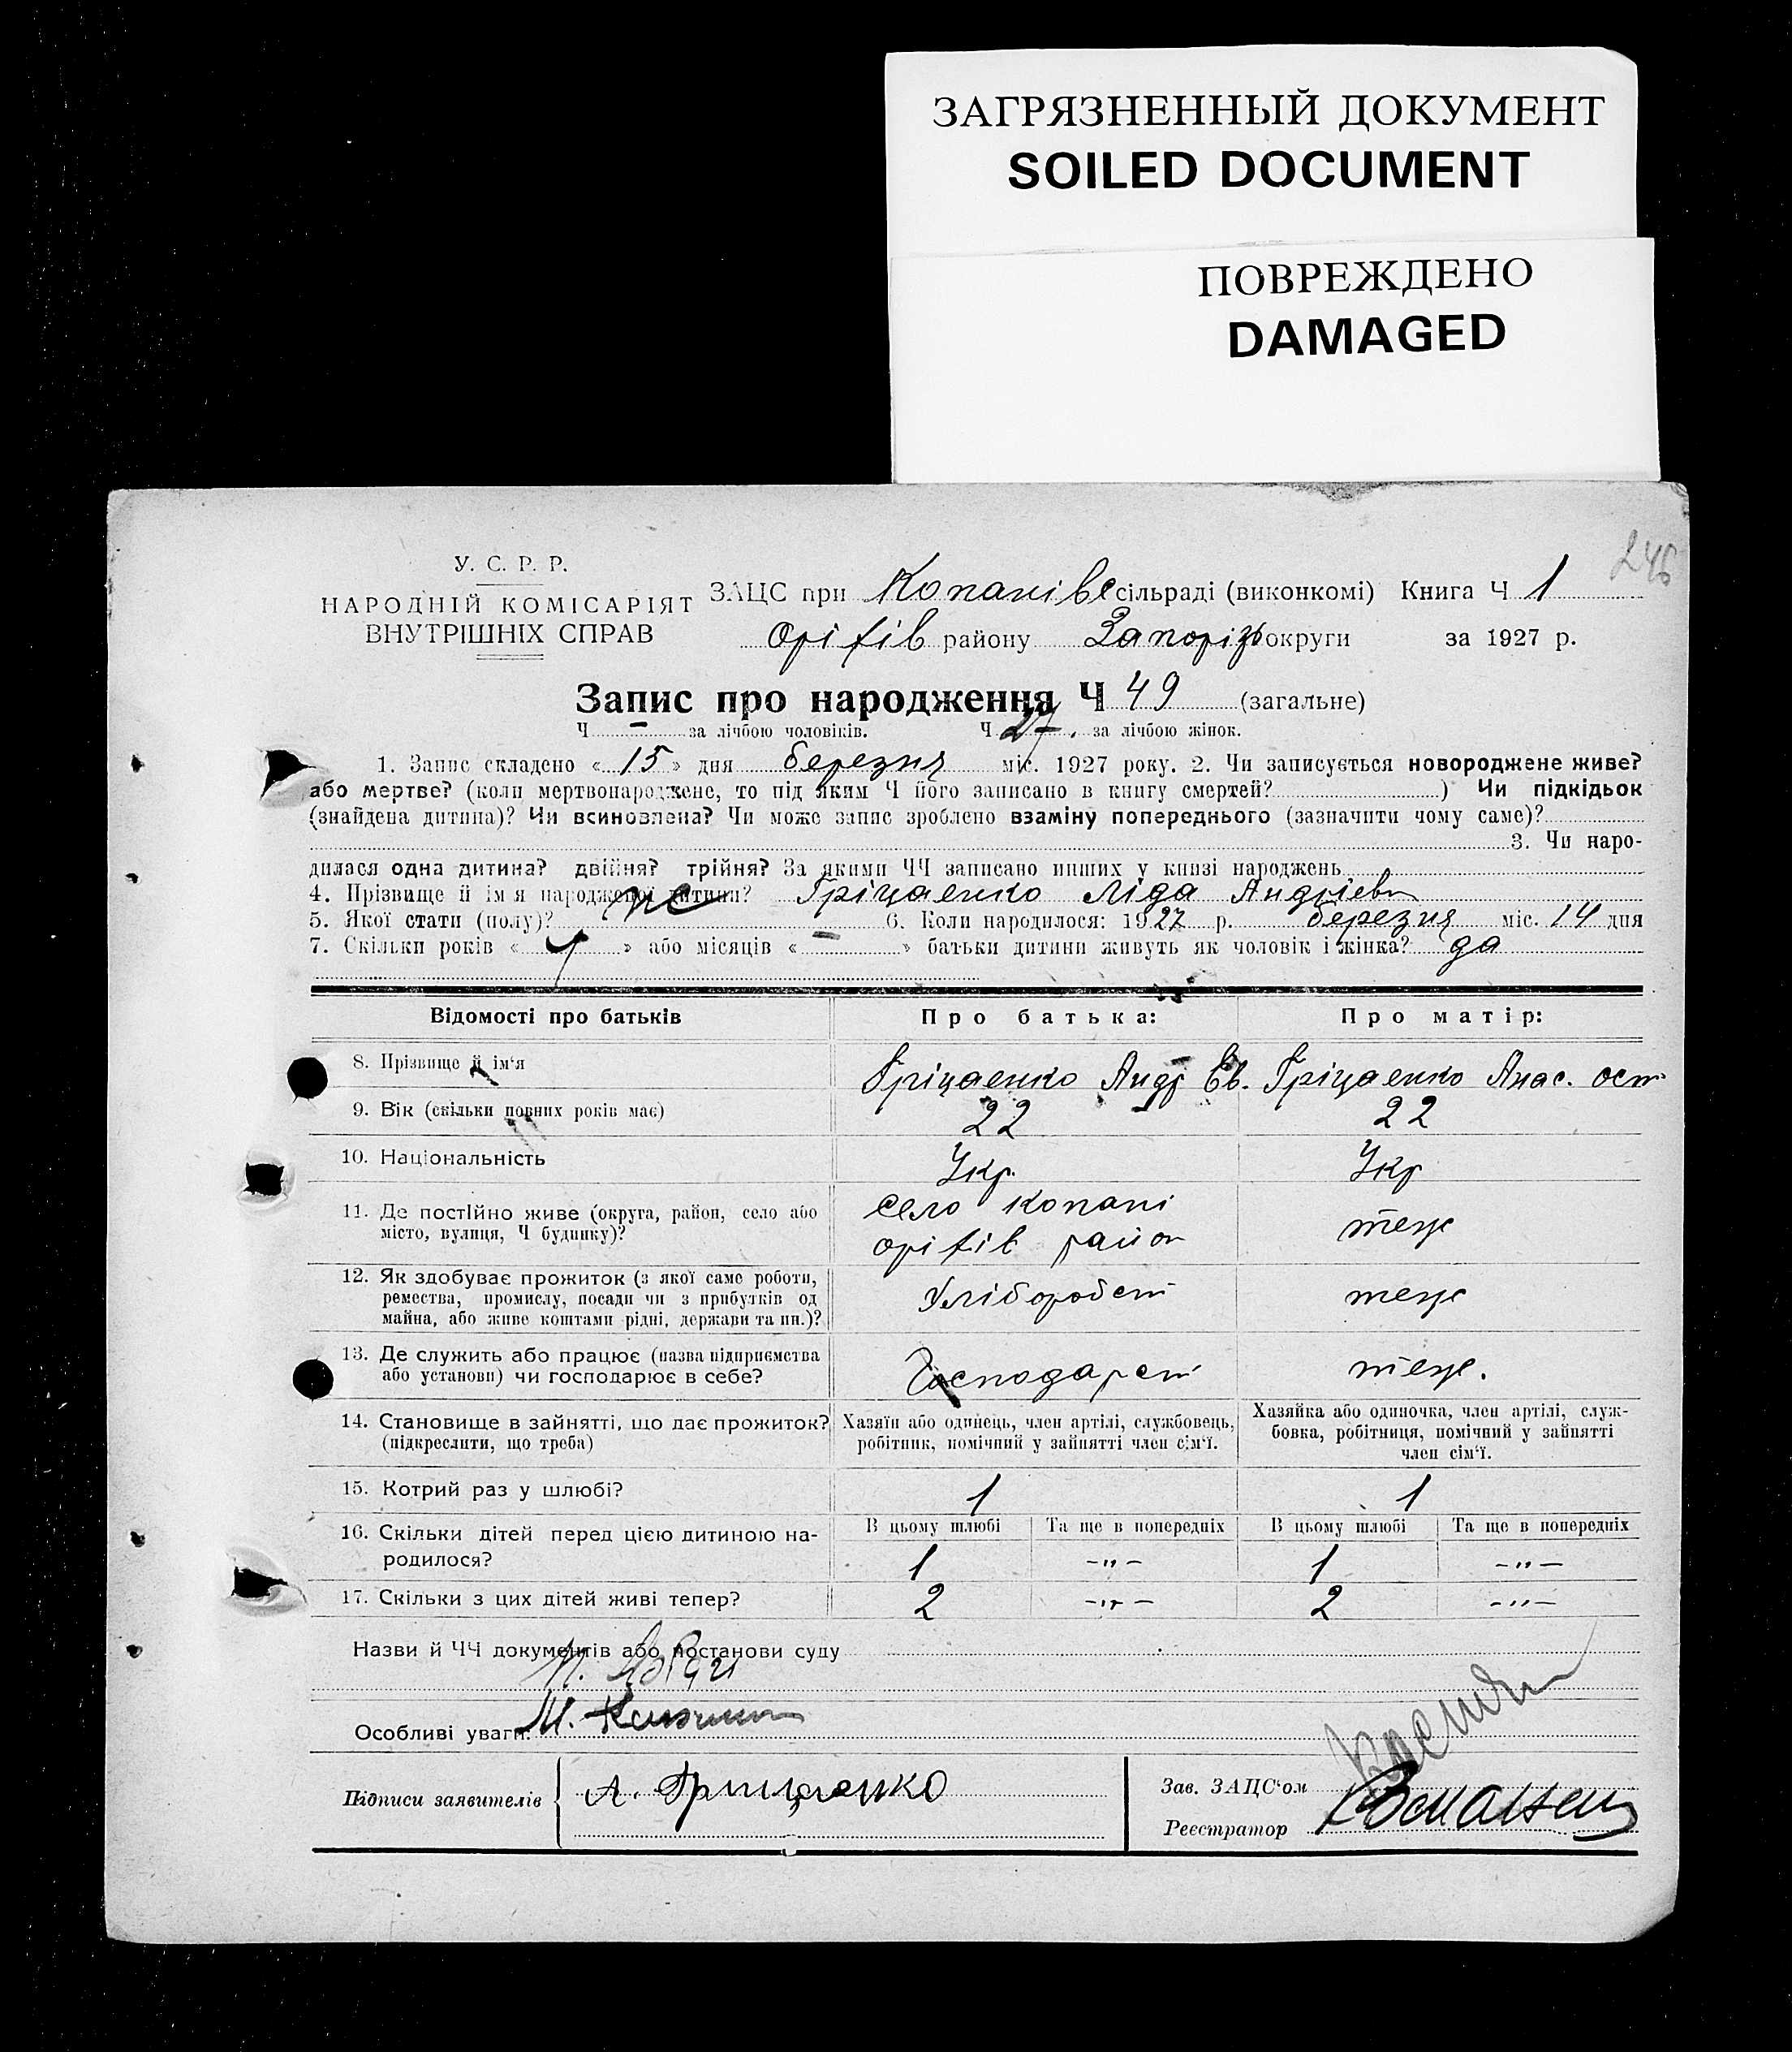 ЗАГРЯЗНЕННЫЙ ДОКУМЕНТ
SOILED DOCUMENT
ПОВРЕЖДЕНО
DAMAGED
246
У. С. Р. Р.
НАРОДНІЙ КОМІСАРІЯТ
ВНУТРІШНІХ СПРАВ
ЗАЦС при Копанівс сільраді (виконкомі) Книга Ч 1
Оріхів району Запорізь округи за 1927 р.
Запис про народження Ч 49 (загальне)
Ч — за лічбою чоловіків. Ч 27. за лічбою жінок.
1. Запис складено « 15 » дня березня міс. 1927 року. 2. Чи записується новороджене живе?
або мертве? (коли мертвонароджене, то під яким Ч його записано в книгу смертей? ) Чи підкідьок
(знайдена дитина)? Чи всиновлена? Чи може запис зроблено взаміну попереднього (зазначити чому саме)?
3. Чи наро-
дилася одна дитина? двійня? трійня? За якими ЧЧ записано инших у книзі народжень
4. Прізвище й ім я народженої дитини? Гріцаенко Ліда Андріевн
5. Якої стати (полу)? 6. Коли народилося: 1927 р. березня міс. 14 дня
7. Скільки років « » або місяців « — » батьки дитини живуть як чоловік і жінка? да
Відомості про батьків Про батька: Про матір:
8. Прізвище й ім‘я Гріцаенко Андр Єв. Гріцаенко Анас. Ост
9. Вік (скільки повних років має) 22 22
10. Національність Укр. Укр
11. Де постійно живе (округа, район, село або
місто, вулиця, Ч будинку)?
село Копані
оріхів район
теж
12. Як здобуває прожиток (з якої саме роботи,
ремества, промислу, посади чи з прибутків од
майна, або живе коштами рідні, держави та ин.)?
Хліборобст теж
13. Де служить або працює (назва підприємства
або установи) чи господарює в себе?
Господарст теж.
14. Становище в зайнятті, що дає прожиток?
(підкреслити, що треба)
Хазяїн або одинець, член артілі, службовець,
робітник, помічний у зайнятті член сім‘ї.
Хазяйка або одиночка, член артілі, служ-
бовка, робітниця, помічний у зайнятті
член сім‘ї.
15. Котрий раз у шлюбі? 1 1
16. Скільки дітей перед цією дитиною на-
родилося?
В цьому шлюбі Та ще в попередніх В цьому шлюбі Та ще в попередніх
1 –"– 1 –"–
17. Скільки з цих дітей живі тепер? 2 –"– 2 –"–
Назви й ЧЧ документів або постанови суду
Особливі уваги:
Підписи заявителів А. Грицаенко
Зав. ЗАЦС‘ом
Реєстратор